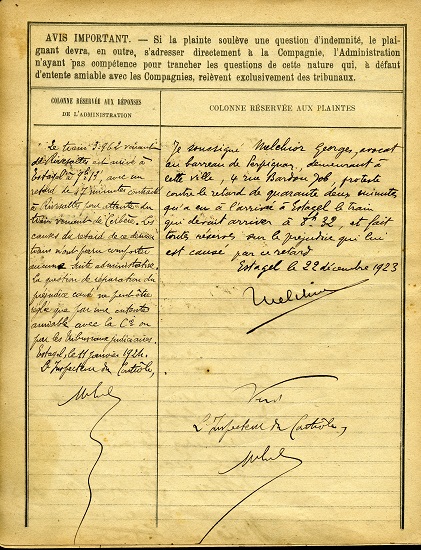 AVIS IMPORTANT. — Si la plainte soulève une question d'indemnité, le plai-
gnant devra, en outre, s'adresser directement à la Compagnie, l'Administration
n'ayant pas compétence pour trancher les questions de cette nature qui, à défaut
d'entente amiable avec les Compagnies, relèvent exclusivement des tribunaux.
COLONNE RÉSERVÉE AUX RÉPONSES
DE L'ADMINISTRATION
Le train 3.962 venant
de Rivesaltes est arrivé à
Estagel à avec un
retard de 47 minutes contracté
à Rivesaltes pour attente du
train venant de Cerbère. Les
causes de retard de ce dernier
train n'ont paru comporter
aucune suite administrative.
La question de réparation du
préjudice causé ne peut être
réglée que par une entente
amiable avec la Cie ou
par les tribunaux judiciaires.
Estagel, le 11 janvier 1924.
L'Inspecteur du Contrôle,
COLONNE RÉSERVÉE AUX PLAINTES
Je soussigné Melchior Georges, avocat
au barreau de Perpignan, demeurant à
cette ville, 4 rue Bardou Job, proteste
contre le retard de quarante deux minutes
qu'a eu à l'arrivée à Estagel le train
qui devait arriver à 8h 32, et fait
toutes réserves sur le préjudice qui lui
est causé par ce retard
Estagel le 22 décembre 1923
Melchior
Vu
L'Inspecteur du Contrôle,